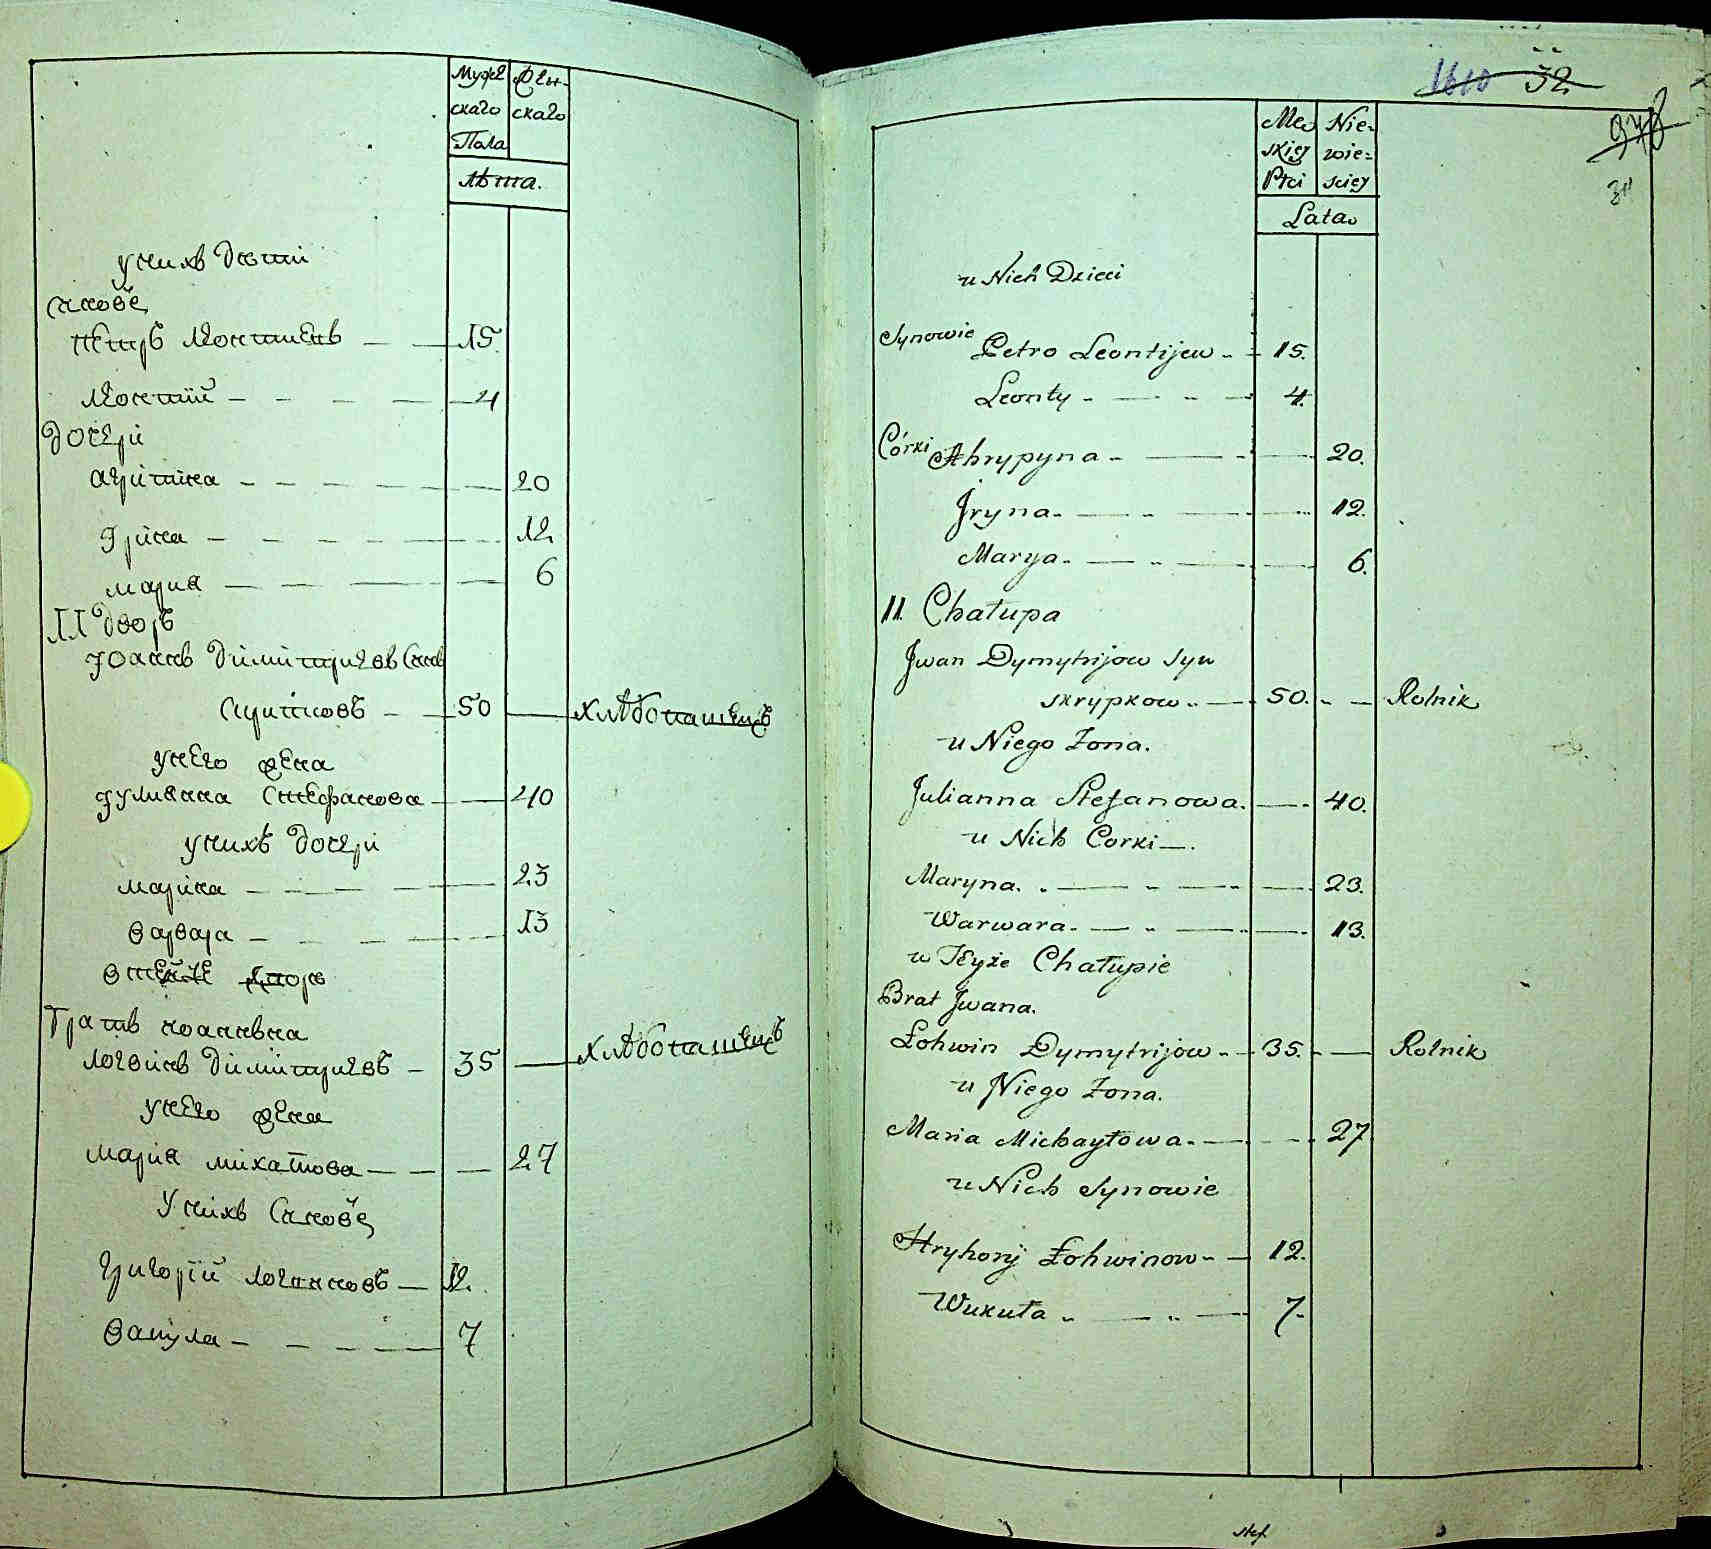 Мужескаго Пола
Женскаго
Лѣта.
у нихъ дѣти
Сынове
Петръ Леонтиевъ — — 15.
Леонтій — — — — 4
дочери
Агрипина — — — — 20
Ірина — — — — 12.
Мария — — — — 6
11 дворъ
Іоаннъ Димитриевъ Сынъ
Скрипковъ — — 50 — хлѣбопашецъ
у него жена
Іулианна Стефанова — — 40
у нихъ дочери
Марина — — — — 23
Варвара — — — — 13
в тей же хаторѣ
Братъ Иоаннна
Логвинъ Димитриевъ — 35 — хлѣбопашецъ
у него жена
Мария Михайлова — — — 27
У нихъ Сынове
Григорій Логвиновъ — 12.
Вакула — — — — 7
1610 32.
978
31
Męskiej Płci
Niewieściej
Lata
u Nich Dzieci
Synowie Petro Leontijew — 15.
Leonty — — 4.
Córki Ahrypyna — — 20.
Jryna — — 12.
Marya — — 6.
11. Chałupa
Jwan Dymytrijow syn
skrypkow — 50. — Rolnik
u Niego Żona.
Julianna Stefanowa. — 40.
u Nich Corki —.
Maryna. — — 23.
Warwara. — — 13.
w Teyże Chałupie
Brat Jwana.
Łohwin Dymytrijow — 35. — Rolnik
u Niego Żona.
Maria Michayłowa. — — 27
u Nich Synowie
Hryhorij Łohwinow — 12.
Wukuła — — 7.